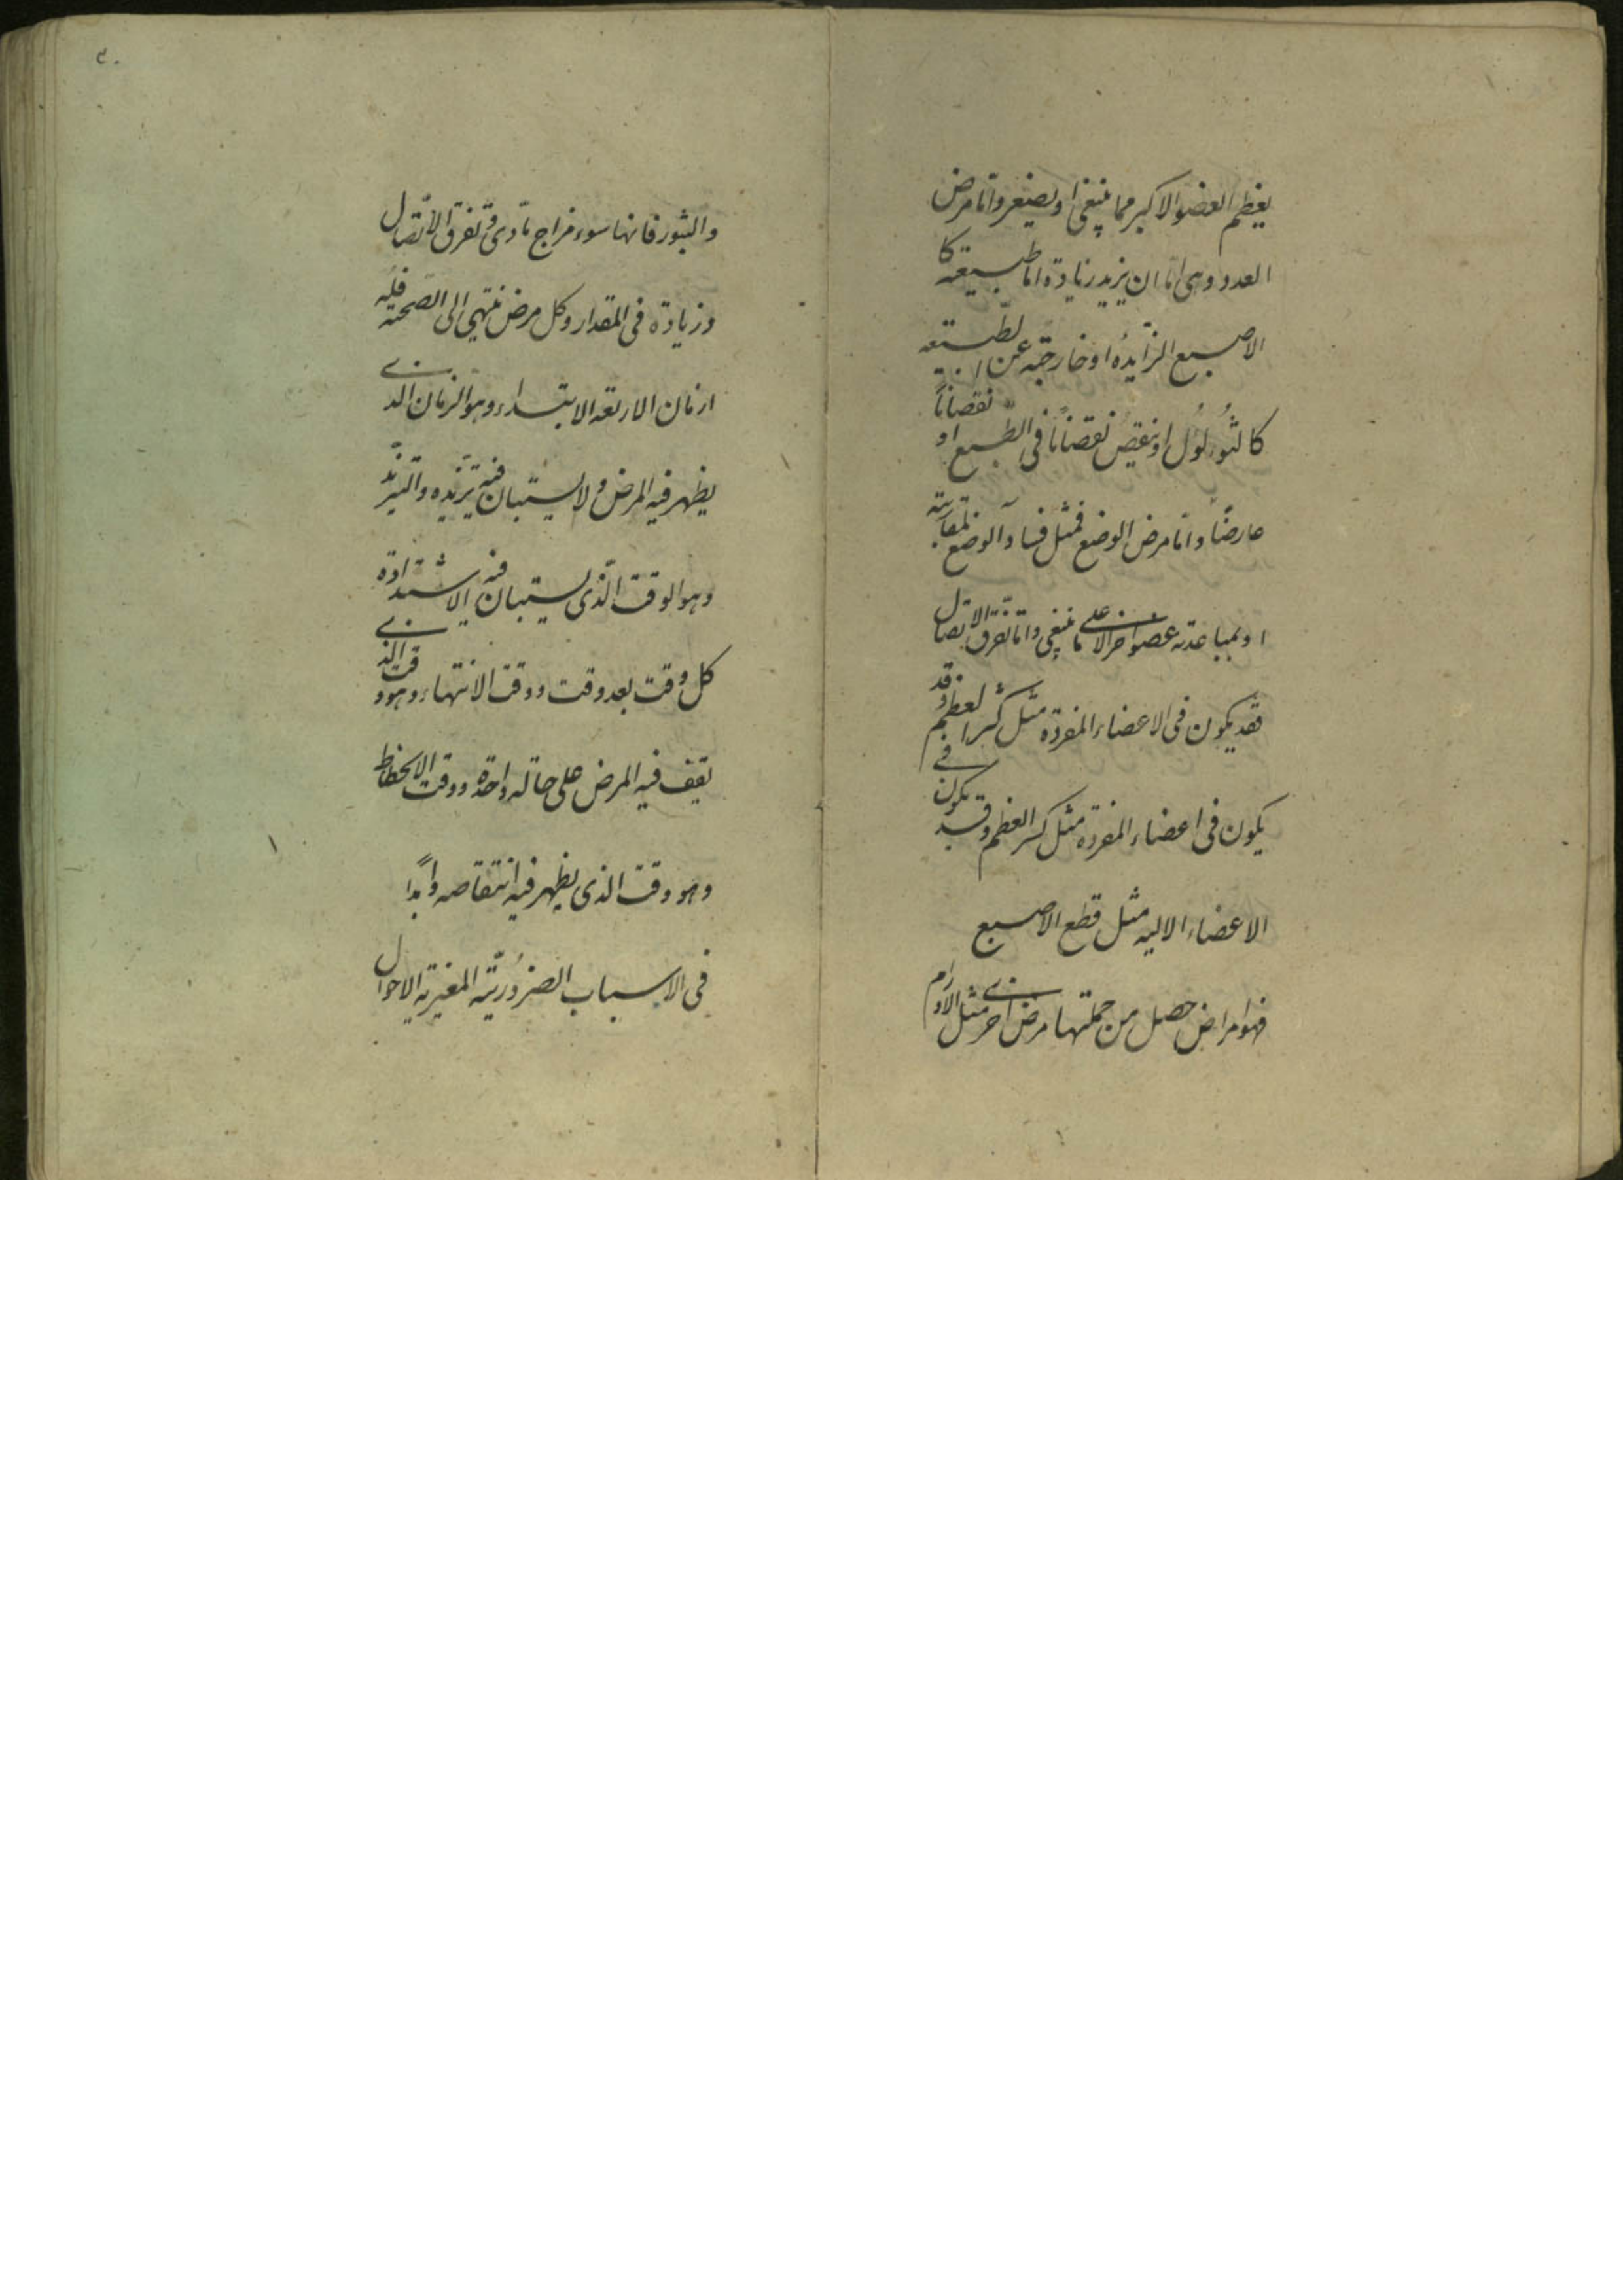 يعظم العضو الاكبر مما ينبغي او يصغر واما مرض
العدد وهي اما ان يزيد زيادة اما طبيعته كا
الاصبع الزايدة او خارجته عن الطبيعه
كالثؤلول او ينقص نقصانًا في الطبع او نقصانًا
عارضًا واما مرض الوضع فمثل فساد الوضع لمقاربته
او بمباعدته عضو اخر الا على ما ينبغي واما تفرق الاتصال
فقد يكون في الاعضاء المفرده مثل كسر العظم وقد
يكون في اعضاء المفرده مثل كسر العظم وقد يكون في
الاعضاء الاليه مثل قطع الاصبع
فهو امراض حصل من جملتها مرض اخر مثل الاورام
٣٠
والبثور فانها سوء مزاج مادي و تفرق الاتصال
وزيادة في المقدار وكل مرض ينتهي الى الصحته فله
ازمان الاربعه الابتداء وهو الزمان الذي
يظهر فيه المرض ولا يستبان فيه تزيده والتزيد
وهو الوقت الذي يستبان فيه الاشتداده
كل وقت بعد وقت ووقت الانتهاء وهو وقت الذي
يقف فيه المرض على حاله واحدة ووقت الانحطاط
وهو وقت الذي يظهر فيه انتقاصه
في الاسباب الضرورية المغيرته الاحوال